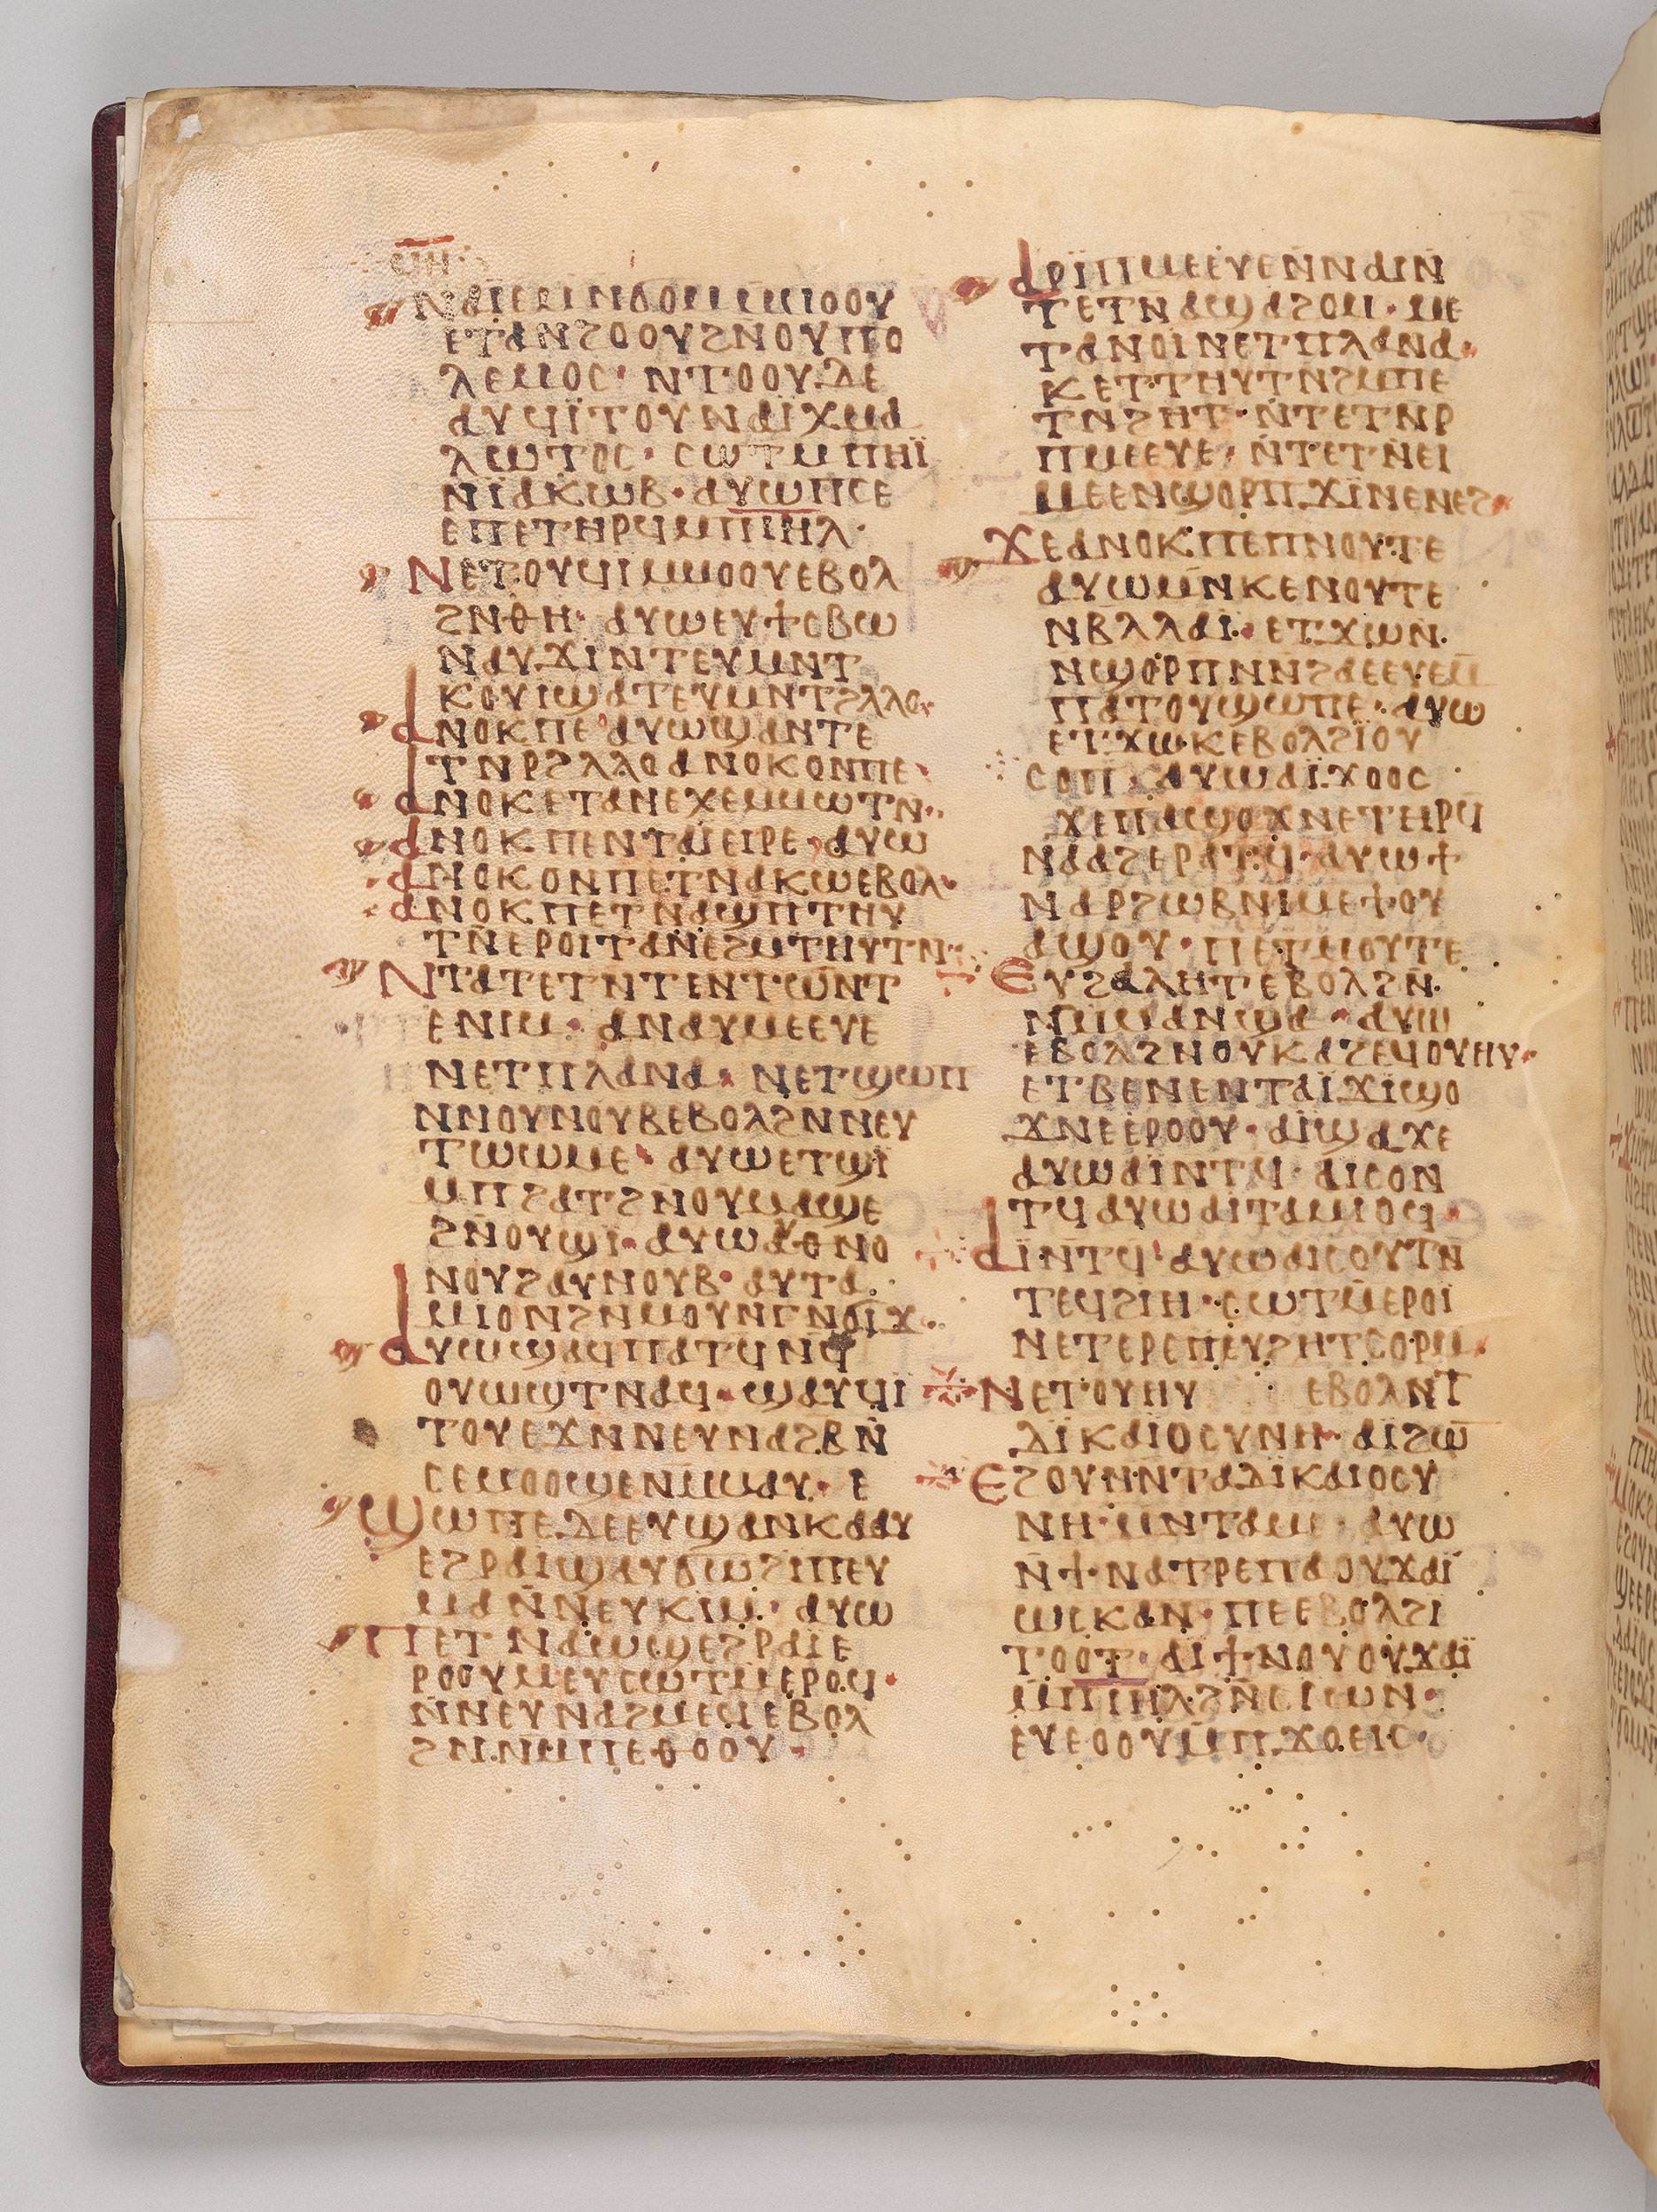 ⲥⲡⲏ
ⲛⲁⲓⲉⲙⲛϭⲟⲙⲙⲙⲟⲟⲩ
ⲉⲧⲁⲛϩⲟⲟⲩϩⲛⲟⲩⲡⲟ
ⲗⲉⲙⲟⲥ· ⲛⲧⲟⲟⲩ ⲇⲉ
ⲁⲩϥⲓⲧⲟⲩⲛⲁⲓⲭⲙⲁ
ⲗⲱⲧⲟⲥ· ⲥⲱⲧⲙⲡⲏⲓ̈
ⲛⲓ̈ⲁⲕⲱⲃ· ⲁⲩⲱⲡⲥⲉ
ⲉⲡⲉⲧⲏⲣϥⲙⲡⲓⲏⲗ·
ⲛⲉⲧⲟⲩϥⲓⲙⲙⲟⲟⲩⲉⲃⲟⲗ
ϩⲛⲑⲏ· ⲁⲩⲱⲉⲩϯⲥⲃⲱ
ⲛⲁⲩϫⲓⲛⲧⲉⲩⲙⲛⲧ
ⲕⲟⲩⲓϣⲁⲧⲉⲩⲙⲛⲧϩⲗⲗⲟ·
ⲁⲛⲟⲕⲡⲉ ⲁⲩⲱϣⲁⲛⲧⲉ
ⲧⲛⲣϩⲗⲗⲟⲁⲛⲟⲕⲟⲛⲡⲉ·
ⲁⲛⲟⲕⲉⲧⲁⲛⲉⲭⲉⲙⲙⲱⲧⲛ·
ⲁⲛⲟⲕⲡⲉⲛⲧⲁⲓⲉⲓⲣⲉ· ⲁⲩⲱ
ⲁⲛⲟⲕⲟⲛⲡⲉⲧⲛⲁⲕⲱⲉⲃⲟⲗ·
ⲁⲛⲟⲕⲡⲉⲧⲛⲁϣⲡⲧⲏⲩ
ⲧⲛ̄ⲉⲣⲟⲓⲧⲁⲛⲉϩⲙⲧⲏⲩⲧⲛ·
ⲛⲧⲁⲧⲉⲧⲛⲧⲉⲛⲧⲱⲛⲧ
ⲉⲛⲓⲙ· ⲁⲛⲁⲩⲙⲉⲉⲩⲉ
ⲛⲉⲧⲡⲗⲁⲛⲁ· ⲛⲉⲧϣⲱⲡ
ⲛⲛⲟⲩⲛⲟⲩⲃⲉⲃⲟⲗϩⲛⲛⲉⲩ
ⲧⲱⲱⲙⲉ· ⲁⲩⲱⲉⲧϣⲓ
ⲙⲡϩⲁⲧϩⲛⲟⲩⲙⲁϣⲉ
ϩⲛⲟⲩϣⲓ· ⲁⲩⲱⲁⲩⲑⲛⲟ
ⲛⲟⲩϩⲁⲩⲛⲟⲩⲃ· ⲁⲩⲧⲁ
ⲙⲓⲟⲛϩⲛⲙⲟⲩⲛⲅⲛϭⲓϫ·
ⲁⲩⲱϣⲁϥⲡⲁⲧϥⲛϥ
ⲟⲩⲱϣⲧⲛⲁϥ· ϣⲁⲩϥⲓ
ⲧⲟⲩⲉϫⲛⲛⲉⲩⲛⲁϩⲃⲛ̄
ⲥⲉⲙⲟⲟϣⲉⲛⲙⲙⲁⲩ· ⲉ
ϣⲱⲡⲉⲇⲉⲉⲩϣⲁⲛⲕⲁⲁⲩ
ⲉϩⲣⲁⲓϣⲁⲩϭⲱϩⲓⲡⲉⲩ
ⲙⲁⲛ̄ⲛⲉⲩⲕⲓⲙ· ⲁⲩⲱ
ⲡⲉⲧⲛⲁⲱϣⲉϩⲣⲁⲓⲉ
ⲣⲟⲟⲩⲙⲉⲩⲥⲱⲧⲙⲉⲣⲟϥ·
ⲛ̄ⲛⲉⲩⲛⲁϩⲙⲉϥⲉⲃⲟⲗ
ϩⲛⲛⲙⲡⲉⲑⲟⲟⲩ·
ⲁⲣⲓ̈ⲡⲙⲉⲉⲩⲉⲛ̄ⲛⲁⲓⲛ̄
ⲧⲉⲧⲛⲁϣⲁϩⲟⲙ· ⲙⲉ
ⲧⲁⲛⲟⲓⲛⲉⲧⲡⲗⲁⲛⲁ·
ⲕⲉⲧⲧⲏⲩⲧⲛϩⲙⲡⲉ
ⲧⲛϩⲏⲧ· ⲛ̄ⲧⲉⲧⲛⲣ
ⲡⲙⲉⲉⲩⲉ· ⲛ̄ⲧⲉⲧⲛ̄ⲉⲓ
ⲙⲉⲉⲛϣⲟⲣⲡ ϫⲓ̈ⲛⲉⲛⲉϩ·
ϫⲉⲁⲛⲟⲕⲡⲉⲡⲛⲟⲩⲧⲉ
ⲁⲩⲱⲙⲛ̄ⲕⲉⲛⲟⲩⲧⲉ
ⲛⲃⲗⲗⲁⲓ̈· ⲉⲧϫⲱⲛ·
ⲛϣⲟⲣⲡⲛⲛ̄ϩⲁⲉⲉⲩⲉⲙ̄
ⲡⲁⲧⲟⲩϣⲱⲡⲉ· ⲁⲩⲱ
ⲉⲧϫⲱⲕⲉⲃⲟⲗϩⲓ̈ⲟⲩ
ⲥⲟⲡ· ⲁⲩⲱⲁⲓ̈ϫⲟⲟⲥ
ϫⲉⲡⲁϣⲟϫⲛⲉⲧⲏⲣϥ
ⲛⲁⲁϩⲉⲣⲁⲧϥ· ⲁⲩⲱϯ
ⲛⲁⲣϩⲱⲃⲛⲓⲙⲉϯⲟⲩ
ⲁϣⲟⲩ· ⲡⲉⲧⲙⲟⲩⲧⲉ
ⲉⲩϩⲁⲗⲏⲧⲉⲃⲟⲗϩⲛ̄
ⲙ̄ⲙⲁⲛϣⲁ· ⲁⲩⲱ
ⲉⲃⲟⲗϩⲛⲟⲩⲕⲁϩⲉϥⲟⲩⲏⲩ·
ⲉⲧⲃⲉⲛⲉⲛⲧⲁⲓ̈ϫⲓ̈ϣⲟ
ϫⲛⲉⲉⲣⲟⲟⲩ· ⲁⲓ̈ϣⲁϫⲉ
ⲁⲩⲱⲁⲓ̈ⲛⲧϥ· ⲁⲓⲥⲟⲛ
ⲧϥⲁⲩⲱⲁⲓⲧⲁⲙⲓⲟϥ·
ⲁⲓ̈ⲛ̄ⲧϥ· ⲁⲩⲱⲁⲓⲥⲟⲩⲧⲛ̄
ⲧⲉϥϩⲓⲏ· ⲥⲱⲧⲙ̄ⲉⲣⲟⲓ̈
ⲛⲉⲧⲉⲣⲉⲡⲉⲩϩⲏⲧⲥⲟⲣⲙ·
ⲛⲉⲧⲟⲩⲏⲩ ⲉⲃⲟⲗⲛⲧ
ⲇⲓ̈ⲕⲁⲓ̈ⲟⲥⲩⲛⲏ· ⲁⲓ̈ϩⲱ̄
ⲉϩⲟⲩⲛⲛⲧⲁⲇⲓ̈ⲕⲁⲓⲟⲥⲩ
ⲛⲏ· ⲙⲛⲧⲁⲙⲉ· ⲁⲩⲱ
ⲛ̄ϯⲛⲁⲧⲣⲉⲡⲁⲟⲩϫⲁⲓ̈
ⲱⲥⲕⲁⲛ· ⲡⲉⲉⲃⲟⲗϩⲓ
ⲧⲟⲟⲧ· ⲁⲓ̈ϯⲛⲟⲩⲟⲩϫⲁⲓ̈
ⲙ̄ⲡⲓⲏⲗ· ϩⲛ̄ⲥⲓⲱⲛ·
ⲉⲩⲉⲟⲟⲩⲙ̄ⲡϫⲟⲉⲓⲥ·